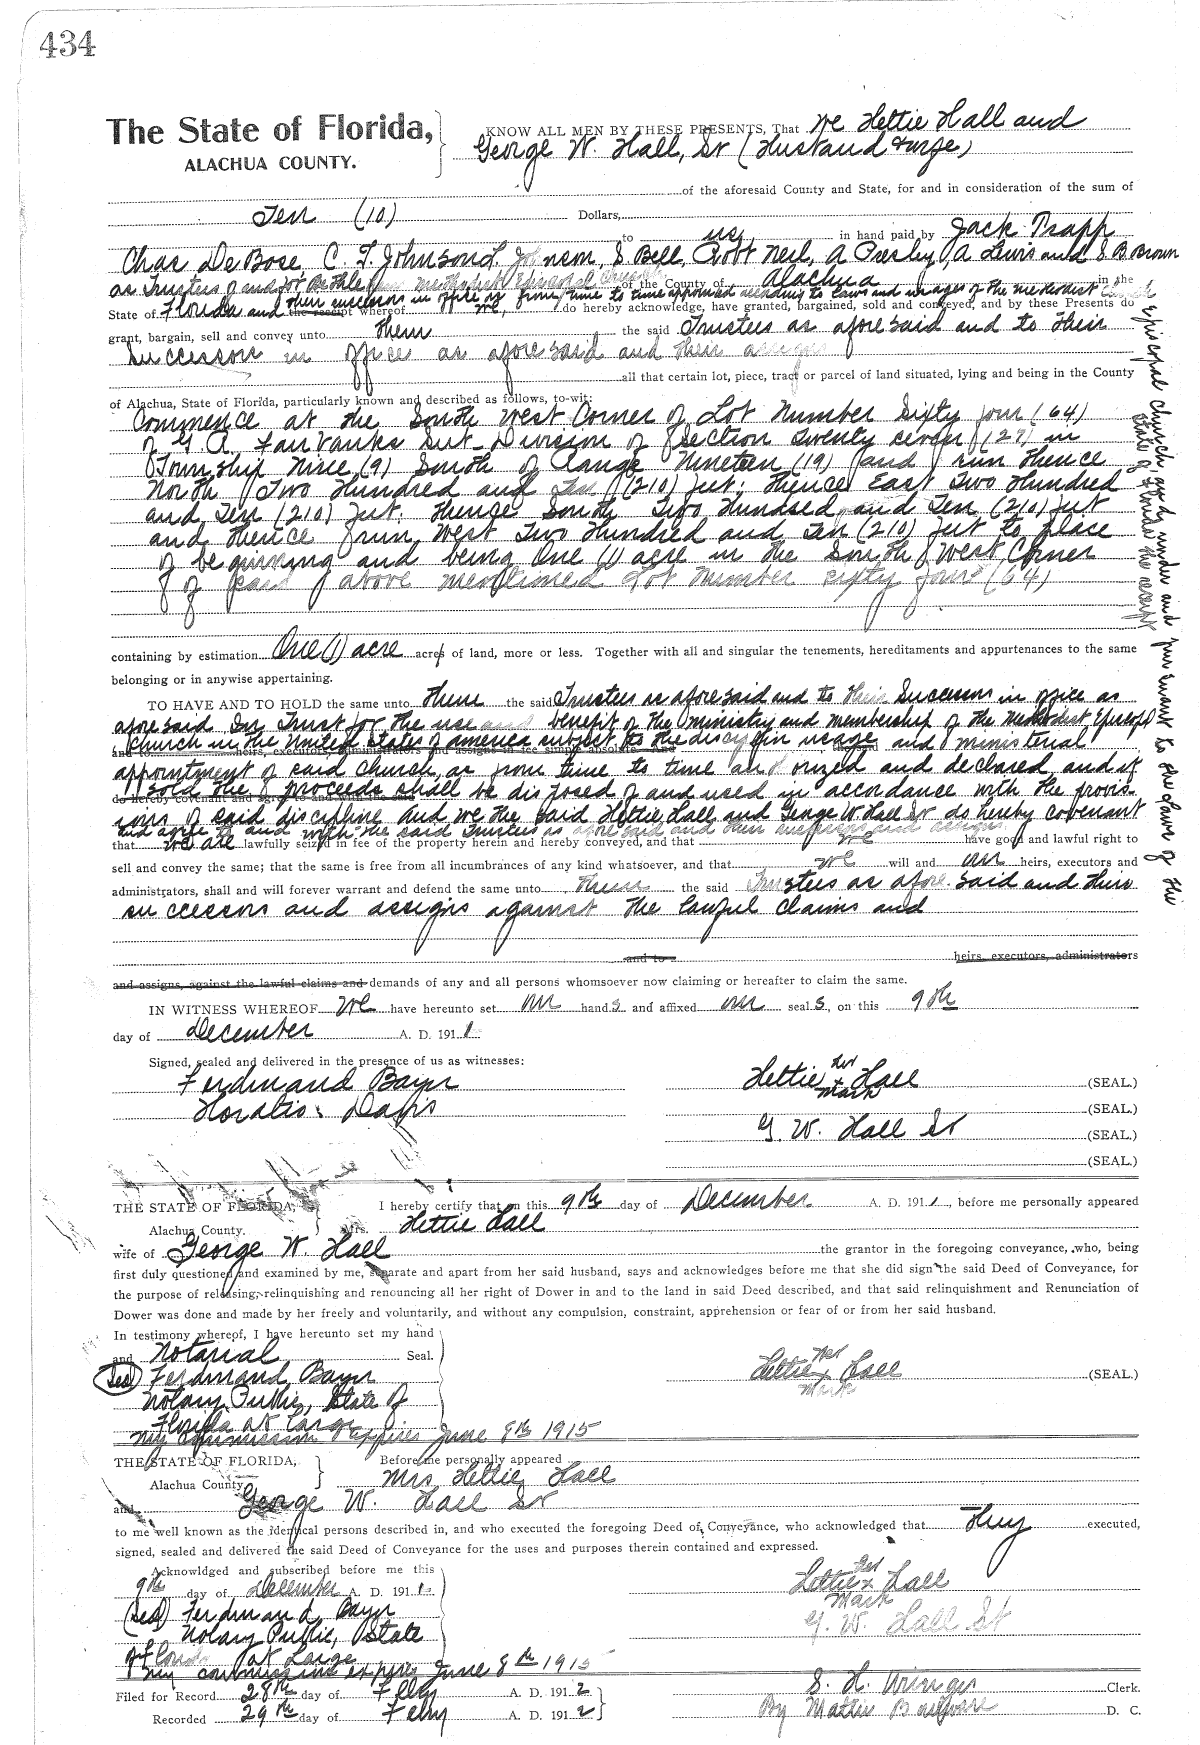 434
The State of Florida,
ALACHUA COUNTY.
KNOW ALL MEN BY THESE PRESENTS, That We Hettie Hall and
George W. Hall, Sr (Husband & wife)
of the aforesaid County and State, for and in consideration of the sum of
Ten (10) Dollars,
to us in hand paid by Jack Trapp
Chas DeBose, C. F. Johnson L. Johnson, S Bell, Robt Neil, A Presley, A Lewis and S B Brown
as Trustees of and for Methodist Episcopal Church of the County of Alachua in the
State of Florida and their successors in office from time to time appointed according to laws and usages of the Methodist
the receipt whereof we, do hereby acknowledge, have granted, bargained, sold and conveyed, and by these Presents do
Episcopal Church, and under and pursuant to the laws of the
State of Florida the receipt
grant, bargain, sell and convey unto them the said Trustees as aforesaid and to their
successors in office as aforesaid and their assigns
all that certain lot, piece, tract or parcel of land situated, lying and being in the County
of Alachua, State of Florida, particularly known and described as follows, to-wit:
Commence at the South West Corner of Lot Number Sixty four (64)
of G A. Fairbanks Sub-Division of Section Twenty seven (27) in
Township Nine (9) South of Range Nineteen (19) and run thence
North Two Hundred and Ten (210) feet; thence East Two Hundred
and Ten (210) feet. thence South Two Hundred and Ten (210) feet
and thence run West Two Hundred and Ten (210) feet to place
of beginning and being One (1) acre in the South West Corner
of said above mentioned Lot Number sixty four (64)
containing by estimation One (1) acre acres of land, more or less. Together with all and singular the tenements, hereditaments and appurtenances to the same
belonging or in anywise appertaining.
TO HAVE AND TO HOLD the same unto them the said Trustees as aforesaid and to their Successors in office as
aforesaid In Trust for the use and benefit of the ministry and membership of the Methodist Episcopl
Church in the United States of America subject to the discyplin usage and ministerial
appointment of said Church, as from time to time authorized and declared and if
sold the proceeds shall be disposed of and used in accordance with the provis-
ions of said discipline And we the said Hettie Hall and George W Hall Sr do hereby covenant
and agree to and with the said Trustees as aforesaid and their successors and assigns
that we are lawfully seized in fee of the property herein and hereby conveyed, and that we have good and lawful right to
sell and convey the same; that the same is free from all incumbrances of any kind whatsoever, and that we will and our heirs, executors and
administrators, shall and will forever warrant and defend the same unto them the said Trustees as aforesaid and their
successors and assigns against the lawful claims and
and to heirs, executors, administrators
and assigns, against the lawful claims and demands of any and all persons whomsoever now claiming or hereafter to claim the same.
IN WITNESS WHEREOF We have hereunto set our hands and affixed our seals, on this 9th
day of December A. D. 1911.
Signed, sealed and delivered in the presence of us as witnesses:
Ferdinand Bayer
Horatio Davis
Hettie her x mark Hall (SEAL.)
(SEAL.)
G. W. Hall Sr (SEAL.)
(SEAL.)
THE STATE OF FLORIDA,
Alachua County.
I hereby certify that on this 9th day of December A. D. 1911, before me personally appeared
Mrs. Hettie Hall
wife of George W. Hall the grantor in the foregoing conveyance, who, being
first duly questioned and examined by me, separate and apart from her said husband, says and acknowledges before me that she did sign the said Deed of Conveyance, for
the purpose of releasing, relinquishing and renouncing all her right of Dower in and to the land in said Deed described, and that said relinquishment and Renunciation of
Dower was done and made by her freely and voluntarily, and without any compulsion, constraint, apprehension or fear of or from her said husband.
In testimony whereof, I have hereunto set my hand
and Notarial Seal.
(Seal) Ferdinand Bayer
Notary Public, State of
Florida at Large
My commission expires June 8th 1915
Hettie her x mark Hall (SEAL.)
THE STATE OF FLORIDA,
Alachua County
Before me personally appeared
Mrs Hettie Hall
and George W. Hall Sr
to me well known as the identical persons described in, and who executed the foregoing Deed of Conveyance, who acknowledged that They executed,
signed, sealed and delivered the said Deed of Conveyance for the uses and purposes therein contained and expressed.
Acknowldged and subscribed before me this
9th day of December A. D. 1911.
(Seal) Ferdinand Bayer
Notary Public, State
of Florida at Large
My commission expires June 8th 1915
Hettie her x Mark Hall
G. W. Hall Sr
Filed for Record 28th day of Feby A. D. 1912
Recorded 29th day of Feby A. D. 1912
S. H. Wienges Clerk.
By Mattie D. C.